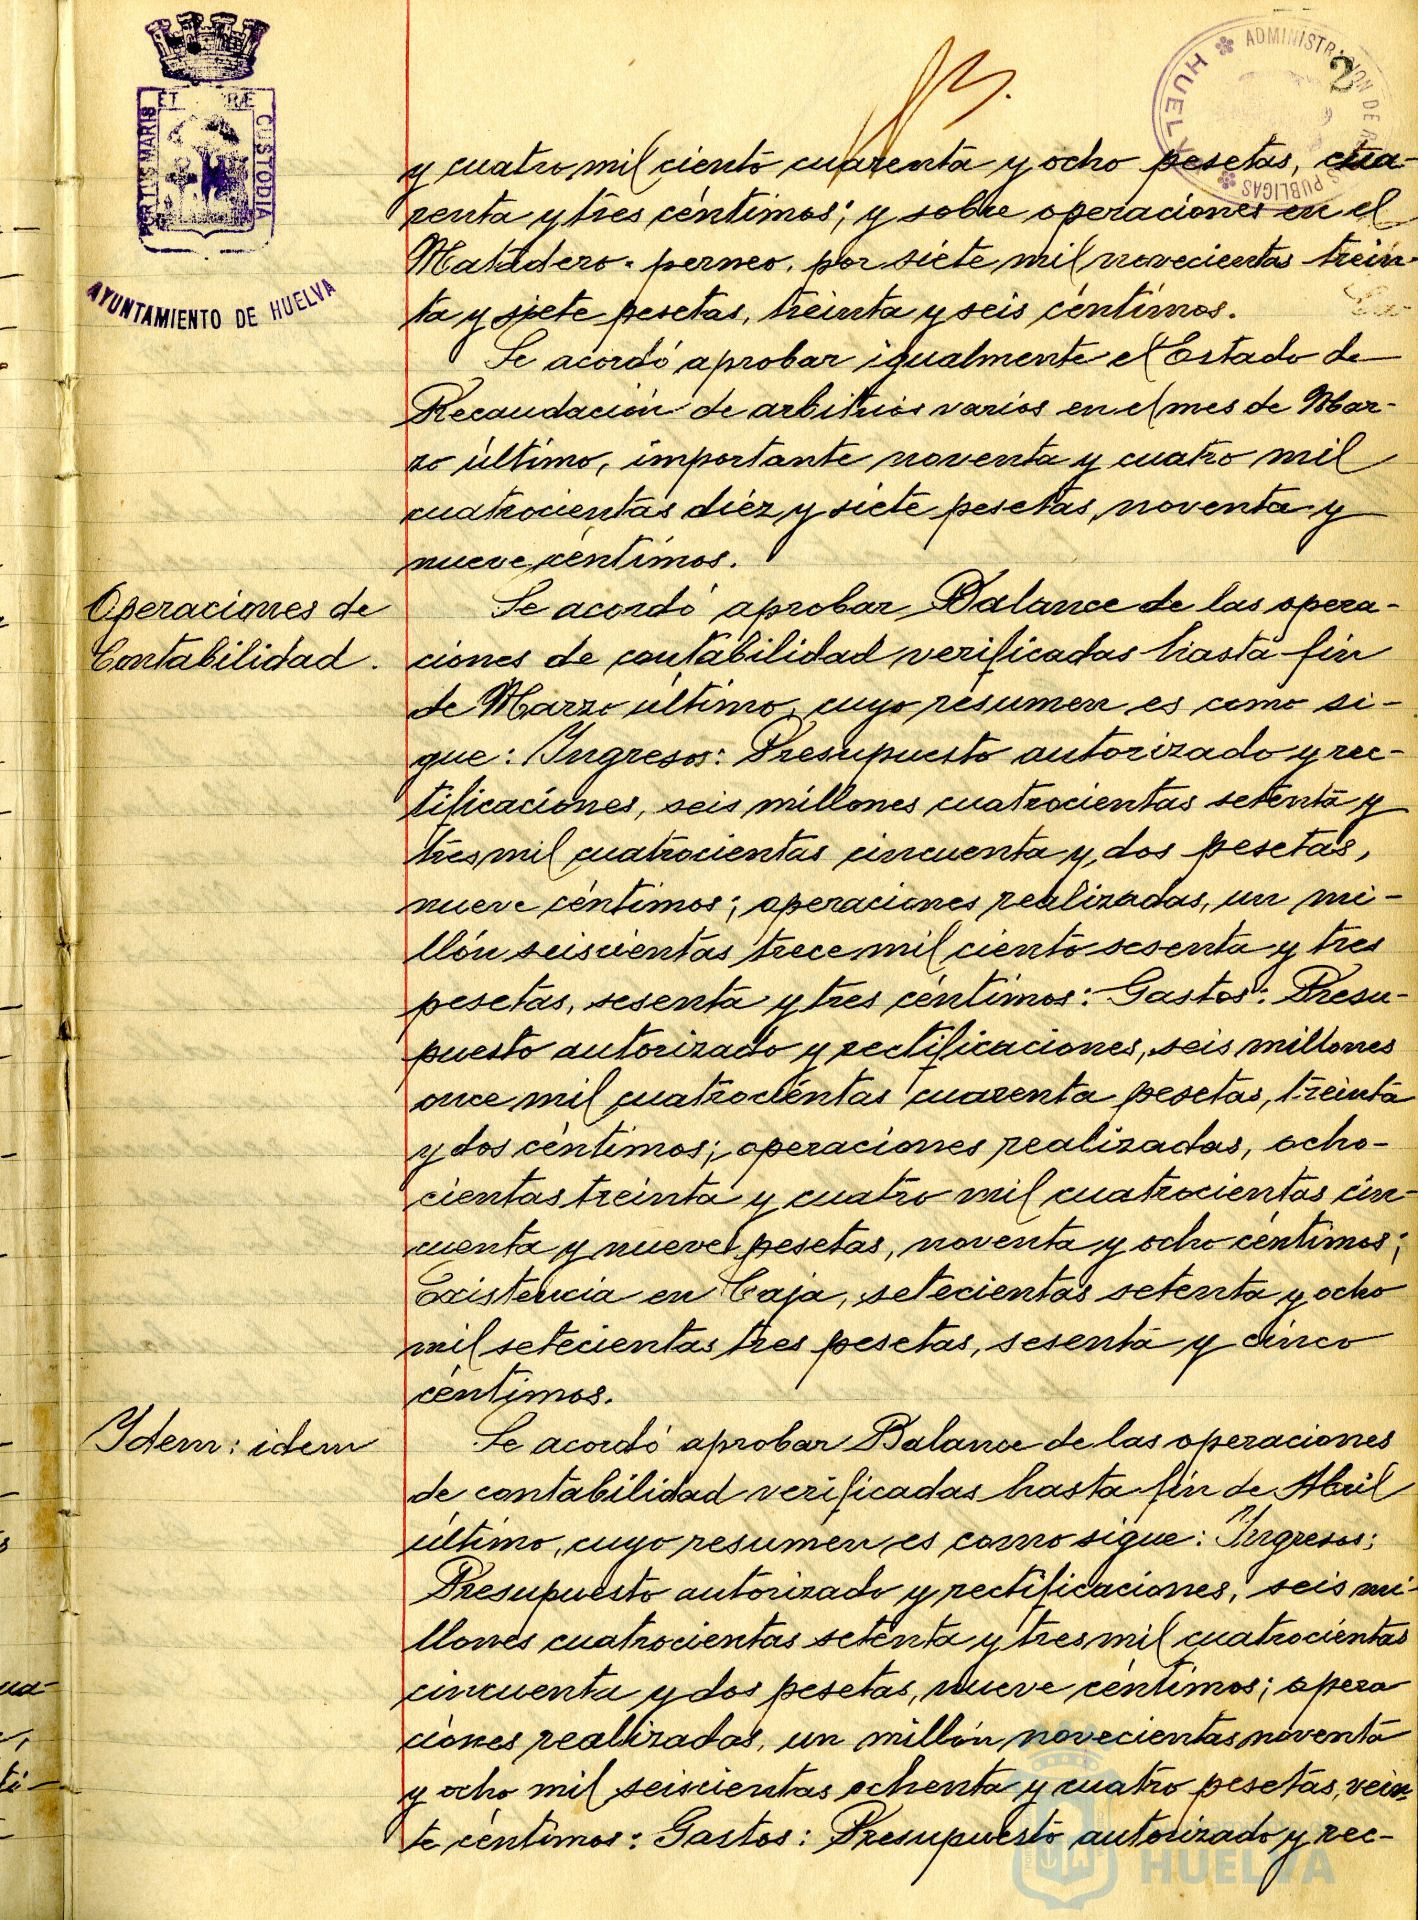 2
ADMINISTRACION DE RENTAS PUBLICAS
HUELVA
PORTUS MARIS ET TERRÆ CUSTODIA
AYUNTAMIENTO DE HUELVA
y cuatro mil ciento cuarenta y ocho pesetas, cua-
renta y tres céntimos; y sobre operaciones en el
Matadero-perneo, por siete mil novecientas trein-
ta y siete pesetas, treinta y seis céntimos.
Se acordó aprobar igualmente el Estado de
Recaudación de arbitrios varios en el mes de Mar-
zo último, importante noventa y cuatro mil
cuatrocientas diéz y siete pesetas, noventa y
nueve céntimos.
Operaciones de
Contabilidad.
Se acordó aprobar Balance de las opera-
ciones de contabilidad verificadas hasta fin
de Marzo último, cuyo resumen es como si-
gue: Ingresos: Presupuesto autorizado y rec-
tificaciones, seis millones cuatrocientas setenta y
tres mil cuatrocientas cincuenta y dos pesetas,
nueve céntimos; operaciones realizadas, un mi-
llón seiscientas trece mil ciento sesenta y tres
pesetas, sesenta y tres céntimos: Gastos: Presu-
puesto autorizado y rectificaciones, seis millones
once mil cuatrocientas cuarenta pesetas, treinta
y dos céntimos; operaciones realizadas, ocho-
cientas treinta y cuatro mil cuatrocientas cin-
cuenta y nueve pesetas, noventa y ocho céntimos;
Existencia en Caja, setecientas setenta y ocho
mil setecientas tres pesetas, sesenta y cinco
céntimos.
Idem: idem
Se acordó aprobar Balance de las operaciones
de contabilidad verificadas hasta fin de Abril
último, cuyo resumen es como sigue: Ingresos:
Presupuesto autorizado y rectificaciones, seis mi-
llones cuatrocientas setenta y tres mil cuatrocientas
cincuenta y dos pesetas, nueve céntimos; opera
ciones realizadas, un millón novecientas noventa
y ocho mil seiscientas ochenta y cuatro pesetas, vein-
te céntimos: Gastos: Presupuesto autorizado y rec-
HUELVA